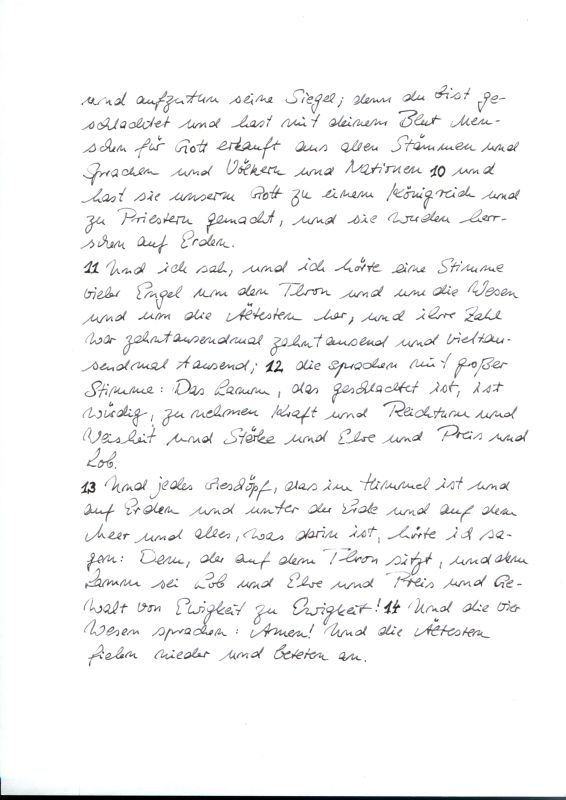 und aufzutun seine Siegel; denn du bist ge-
schlachtet und hast mit deinem Blut Men-
schen für Gott erkauft aus allen Stämmen und
Sprachen und Völkern und Nationen 10 und
hast sie unserm Gott zu einem Königreich und
zu Priestern gemacht, und sie werden herr-
schen auf Erden.
11 Und ich sah, und ich hörte eine Stimme
vieler Engel um den Thron und um die Wesen
und um die Ältesten her, und ihre Zahl
war zehntausendmal zehntausend und vieltau-
sendmal tausend; 12 die sprachen mit großer
Stimme: Das Lamm, das geschlachtet ist, ist
würdig, zu nehmen Kraft und Reichtum und
Weisheit und Stärke und Ehre und Preis und
Lob.
13 Und jedes Geschöpf, das im Himmel ist und
auf Erden und unter der Erde und auf dem
Meer und alles, was darin ist, hörte ich sa-
gen: Dem, der auf dem Thron sitzt, und dem
Lamm sei Lob und Ehre und Preis und Ge-
walt von Ewigkeit zu Ewigkeit! 14 Und die vier
Wesen sprachen: Amen! Und die Ältesten
fielen nieder und beteten an.